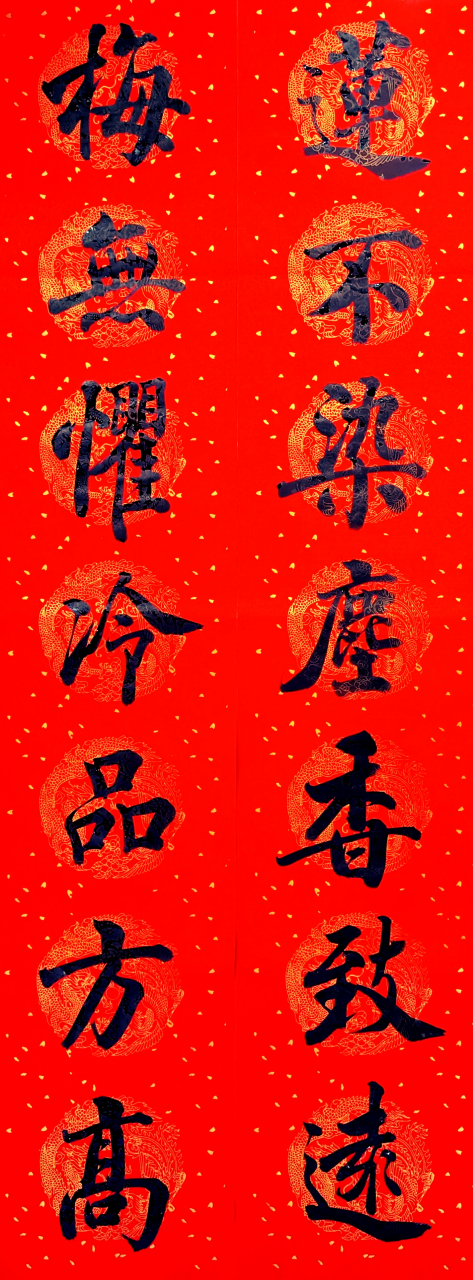 蓮不染塵香致遠
梅無懼冷品方高